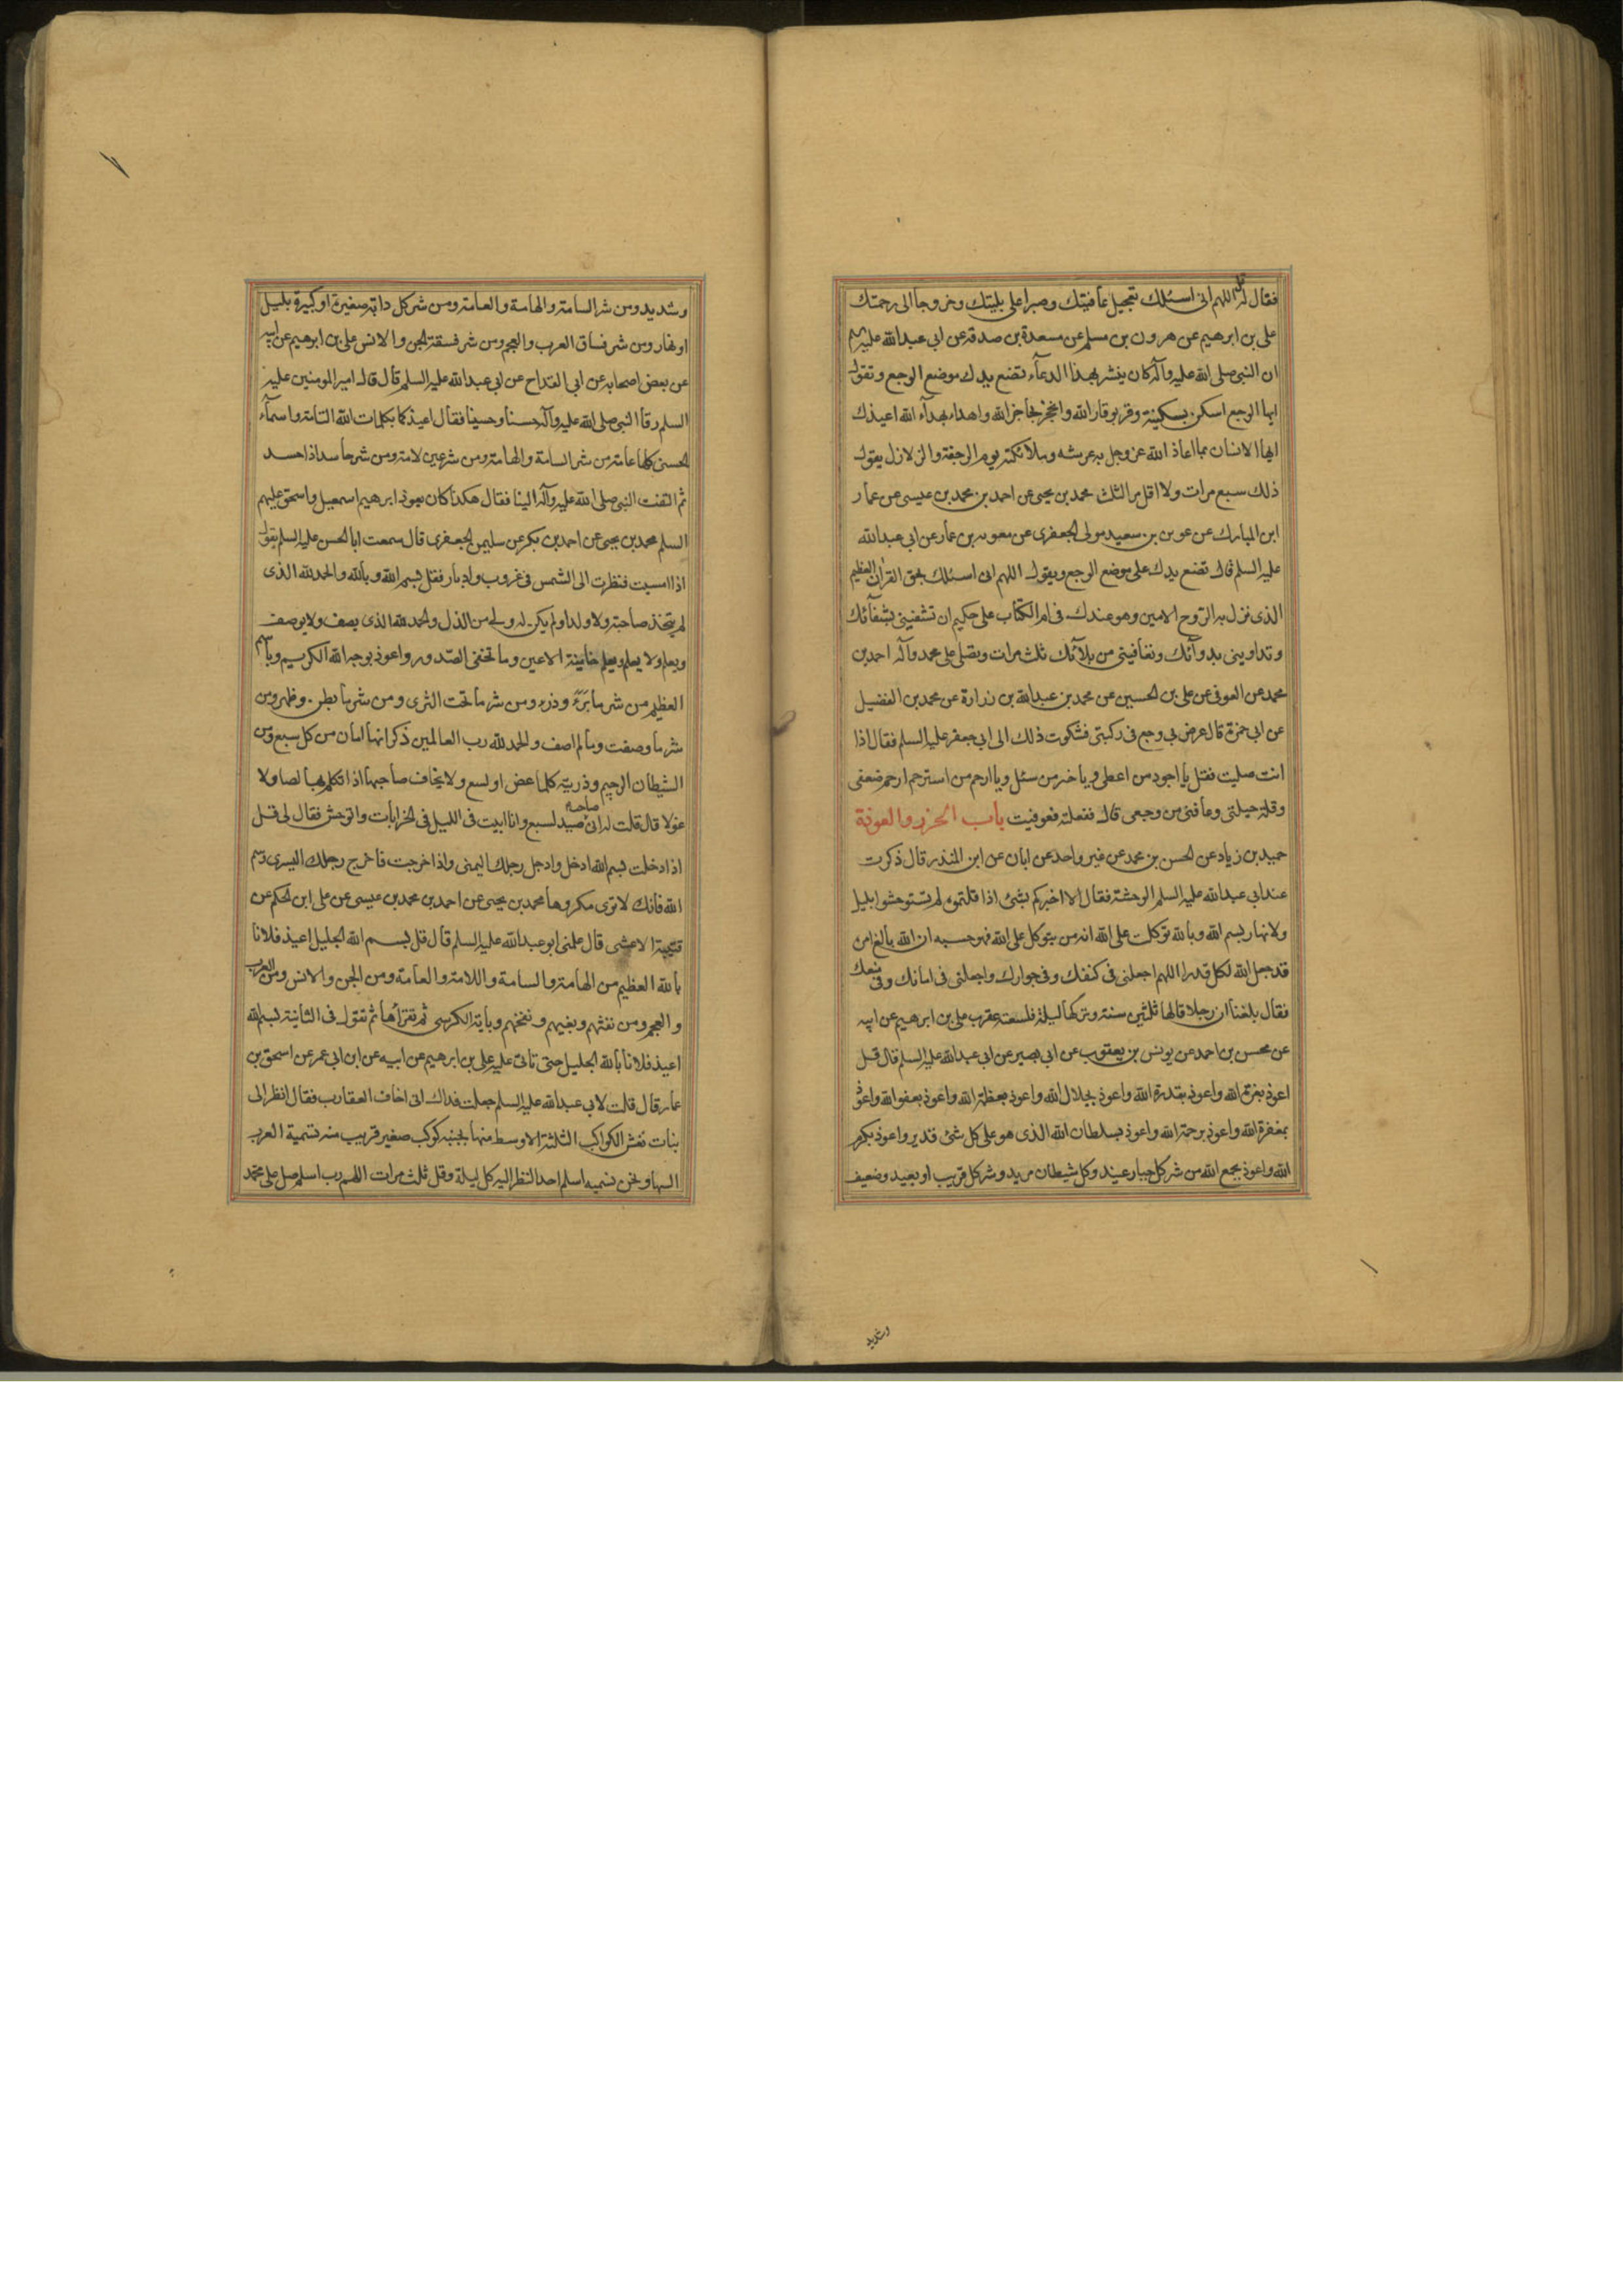 فقال له قل اللهم انى اسئلك تعجيل عافيتك وصبرا على بليتك وخروجا الى رحمتك
على بن ابرهيم عن هرون بن مسلم عن مسعدة بن صدقة عن ابى عبد الله عليه السلم
ان النبى صلى الله عليه وآله كان ينشر بهذا الدعآء تضع يدك موضع الوجع وتقول
ايها الوجع اسكن بسكينة وقر بوقار الله وانحجز بحاجز الله واهدا بهدآء الله اعيذك
ايها الانسان بما اعاذ الله عز وجل به عرشه وملآئكته يوم الرجفة والزلازل يقول
ذلك سبع مرات ولا اقل من الثلث محمد بن يحيى عن احمد بن محمد بن عيسى عن عمار
ابن المبارك عن عون بن سعيد مولى الجعفرى عن معويه بن عمار عن ابى عبد الله
عليه السلم قال تضع يدك على موضع الوجع ويقول اللهم انى اسئلك بحق القرآن العظيم
الذى نزل به الروح الامين وهو عندك فى ام الكتاب على حكيم ان تشفينى بشفآئك
وتداوينى بدوآئك وتعافينى من بلآئك ثلث مرات وتصلى على محمد وآله احمد بن
محمد عن العوفى عن على بن الحسين عن محمد بن عبد الله بن زرارة عن محمد بن الفضيل
عن ابى حمزة قال عرض بى وجع فى ركبتى فشكوت ذلك الى ابى جعفر عليه السلم فقال اذا
انت صليت فقل يا اجود من اعطى ويا خير من سئل ويا ارحم من استرحم ارحم ضعفى
وقلة حيلتى وعافنى من وجعى قال ففعلته فعوفيت باب الحرز والعوذة
حميد بن زياد عن الحسن بن محمد عن غير واحد عن ابان عن ابن المنذر قال ذكرت
عند ابى عبد الله عليه السلم الوحشة فقال الا اخبركم بشئ اذا قلتموه لم تستوحشوا بليل
ولا نهار بسم الله وبالله توكلت على الله انه من يتوكل على الله فهو حسبه ان الله بالغ امره
قد جعل الله لكل قدرا اللهم اجعلنى فى كنفك وفى جوارك واجعلنى فى امانك وفى منعك
فقال بلغنا ان رجلا قالها ثلثين سنة وتركها ليلة فلسعته عقرب على بن ابرهيم عن ابيه
عن محسن بن احمد عن يونس بن يعقوب عن ابى بصير عن ابى عبد الله عليه السلم قال قل
اعوذ بعزة الله واعوذ بقدرة الله واعوذ بجلال الله واعوذ بعظمة الله واعوذ بعفو الله واعوذ
بمغفرة الله واعوذ برحمة الله واعوذ بسلطان الله الذى هو على كل شئ قدير واعوذ بكرم
الله واعوذ بجمع الله من شر كل جبار عنيد وكل شيطان مريد وشر كل قريب او بعيد وضعيف
وشديد
وشديد ومن شر السامة والهامة والعامة ومن شر كل دابة صغيرة او كبيرة بليل
او نهار ومن شر فساق العرب والعجم ومن شر فسقة الجن والانس على بن ابرهيم عن ابيه
عن بعض اصحابه عن ابى القداح عن ابى عبد الله عليه السلم قال قال امير المومنين عليه
السلم رقا النبى صلى الله عليه وآله حسنا وحسينا فقال اعيذكما بكلمات الله التامة واسمآء
الحسنى كلها عامة من شر السامة والهامة ومن شر عين لامة ومن شر حاسد اذا حسد
ثم التفت النبى صلى الله عليه وآله الينا فقال هكذا كان يعوذ ابرهيم اسمعيل واسحق عليهم
السلم محمد بن يحيى عن احمد بن بكر عن سليمن الجعفرى قال سمعت ابا الحسن عليه السلم يقول
اذا امسيت فنظرت الى الشمس فى غروب وادبار فقل بسم الله وبالله والحمد لله الذى
لم يتخذ صاحبة ولا ولدا ولم يكن له ولى من الذل والحمد لله الذى يصف ولا يوصف
ويعلم ولا يعلم ويعلم خاينة الاعين وما تخفى الصدور واعوذ بوجه الله الكريم وباسم
العظيم من شر ما برء وذرء ومن شر ما تحت الثرى ومن شر ما بطن وظهر ومن
شر ما وصفت وما لم اصف والحمد لله رب العالمين ذكر انها امان من كل سبع ومن
الشيطان الرجيم وذريته كلما عض او لسع ولا يخاف صاحبها اذا تكلم بها لصا ولا
غولا قال قلت له انى صاحب صيد لسبع وانا ابيت فى الليل فى الخرابات واتوحش فقال لى قل
اذا دخلت بسم الله ادخل وادخل رجلك اليمنى واذا خرجت فاخرج رجلك اليسرى وسم
الله فانك لا ترى مكروها محمد بن يحيى عن احمد بن محمد بن عيسى عن على ابن الحكم عن
قتيبة الاعشى قال علمنى ابو عبد الله عليه السلم قال قل بسم الله الجليل اعيذ فلانا
بالله العظيم من الهامة والسامة واللامة والعامة ومن الجن والانس ومن العرب
والعجم ومن نفثهم وبغيهم ونفخهم وبآية الكرسى ثم تقرأها ثم تقول فى الثانية بسم الله
اعيذ فلانا بالله الجليل حتى تاتى عليه على بن ابرهيم عن ابيه عن ابن ابى عمر عن اسحق بن
عمار قال قلت لابى عبد الله عليه السلم جعلت فداك انى اخاف العقارب فقال انظر الى
بنات نعش الكواكب الثلثة الاوسط منها بجنبه كوكب صغير قريب منه تسميه العرب
السها ونحن نسميه اسلم احد النظر اليه كل ليلة وقل ثلث مرات اللهم رب اسلم صل على محمد